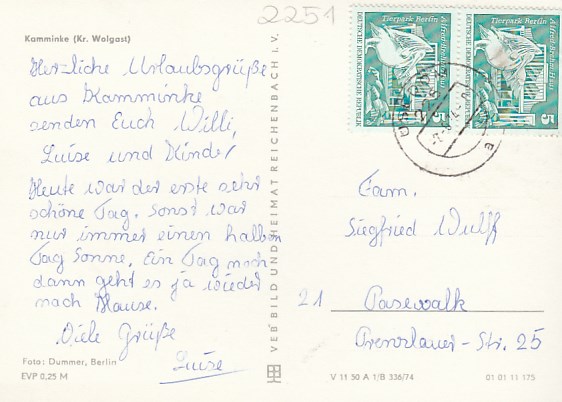 2251
Kamminke (Kr. Wolgast)
Herzliche Urlaubsgrüße
aus Kamminke
senden Euch Willi,
Luise und Kinder
Heute war der erste sehr
schöne Tag. Sonst war
nur immer einen halben
Tag Sonne. Ein Tag noch
dann geht es ja wieder
nach Hause.
Viele Grüße
Luise
Foto: Dummer, Berlin
EVP 0,25 M
VEB BILD UND HEIMAT REICHENBACH I. V.
Tierpark Berlin
Alfred-Brehm-Haus
DEUTSCHE DEMOKRATISCHE REPUBLIK
5
Tierpark Berlin
Alfred-Brehm-Haus
DEUTSCHE DEMOKRATISCHE REPUBLIK
5
Fam.
Siegfried Wulff
21 Pasewalk
Prenzlauer-Str. 25
V 11 50 A 1/B 336/74
01 01 11 175